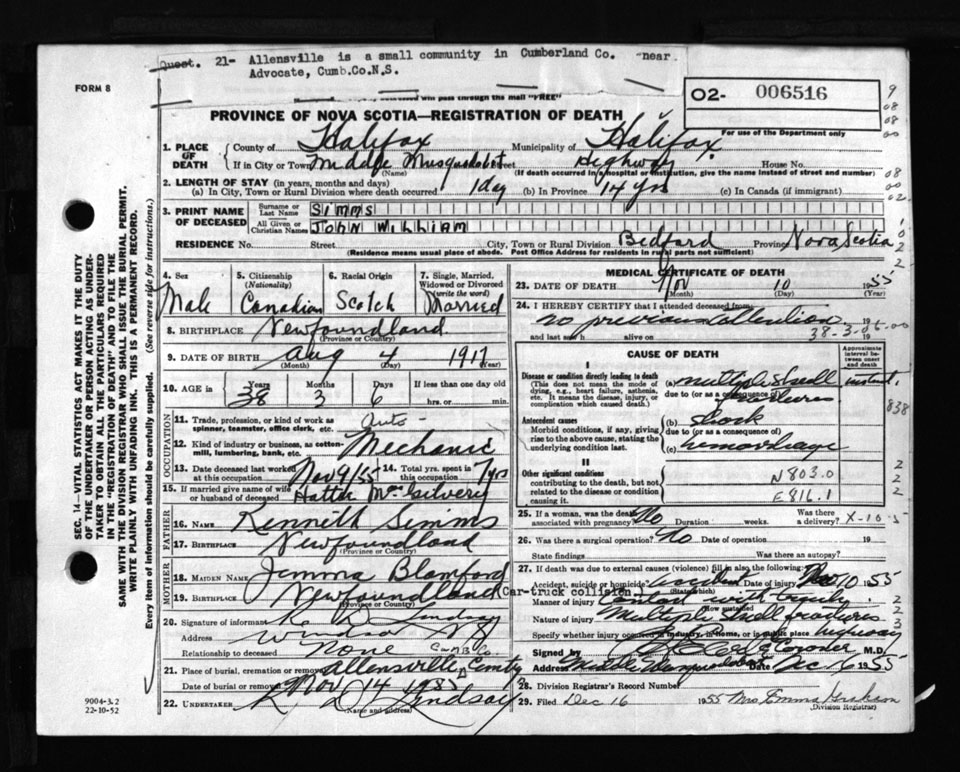 Quest. 21- Allensville is a small community in Cumberland Co. near
Advocate, Cumb.Co.N.S.
FORM 8
will pass through the mail "FREE"
02- 006516
For use of the Department only
PROVINCE OF NOVA SCOTIA—REGISTRATION OF DEATH
1. PLACE OF DEATH County of Halifax Municipality of Halifax
If in City or Town Middle Musquodoboit Street Highway House No.
(Name) (If death occurred in a hospital or institution, give the name instead of street and number)
2. LENGTH OF STAY (in years, months and days)
(a) In City, Town or Rural Division where death occurred 1 day (b) In Province 14 yrs (c) In Canada (if immigrant)
3. PRINT NAME OF DECEASED Surname or Last Name SIMMS
All Given or Christian Names JOHN WILLIAM
RESIDENCE No. Street City, Town or Rural Division Bedford Province Nova Scotia
(Residence means usual place of abode. Post Office Address for residents in rural parts not sufficient)
4. Sex Male
5. Citizenship (Nationality) Canadian
6. Racial Origin Scotch
7. Single, Married, Widowed or Divorced (write the word) Married
8. BIRTHPLACE Newfoundland
(Province or Country)
9. DATE OF BIRTH Aug 4 1917
(Month) (Day) (Year)
10. AGE in Years 38 Months 3 Days 6 If less than one day old hrs. or min.
OCCUPATION
11. Trade, profession, or kind of work as spinner, teamster, office clerk, etc. Auto
12. Kind of industry or business, as cotton-mill, lumbering, bank, etc. Mechanic
13. Date deceased last worked at this occupation Nov 9/55 14. Total yrs. spent in this occupation 7 yrs
15. If married give name of wife or husband of deceased
FATHER
16. NAME Kenneth Simms
17. BIRTHPLACE Newfoundland
(Province or Country)
MOTHER
18. MAIDEN NAME Jemma Blamford
19. BIRTHPLACE Newfoundland
(Province or Country)
20. Signature of informant R. D. Lindsay
Address Windsor N.S.
Relationship to deceased None
21. Place of burial, cremation or removal Allensville Cemty Cumb Co.
Date of burial or removal Nov 14 1955
22. UNDERTAKER R. D. Lindsay
(Name and address)
MEDICAL CERTIFICATE OF DEATH
23. DATE OF DEATH Nov 10 1955
(Month) (Day) (Year)
24. I HEREBY CERTIFY that I attended deceased from
no previous attention 19
and last saw h alive on 19
38-3-06-00
CAUSE OF DEATH
Approximate interval between onset and death
I
Disease or condition directly leading to death (a) multiple skull fractures instant
(This does not mean the mode of dying, e.g., heart failure, asthenia, etc. It means the disease, injury, or complication which caused death.)
due to (or as a consequence of)
838
Antecedent causes (b) shock
Morbid conditions, if any, giving rise to the above cause, stating the underlying condition last.
due to (or as a consequence of)
(c) hemorrhage
II
Other significant conditions contributing to the death, but not related to the disease or condition causing it.
N803.0
E816.1
25. If a woman, was the death associated with pregnancy? No Duration weeks. Was there a delivery? X-10
26. Was there a surgical operation? No Date of operation 19
State findings Was there an autopsy?
27. If death was due to external causes (violence) fill in also the following:
Accident, suicide or homicide? accident Date of injury Nov 10 1955
(State which)
Car-truck collision.
Manner of injury contact with truck
(How sustained)
Nature of injury Multiple skull fractures
Specify whether injury occurred in industry, in home, or in public place highway
Signed by Coroner M.D.
Address Middle Musquodoboit Date Dec 6 1955
28. Division Registrar's Record Number
29. Filed Dec 16 1955 Mrs Emma Graham
(Division Registrar)
SEC. 14—VITAL STATISTICS ACT MAKES IT THE DUTY
OF THE UNDERTAKER OR PERSON ACTING AS UNDER-
TAKER TO OBTAIN ALL THE PARTICULARS REQUIRED
IN THE "REGISTRATION OF DEATH" AND TO FILE THE
SAME WITH THE DIVISION REGISTRAR WHO SHALL ISSUE THE BURIAL PERMIT.
WRITE PLAINLY WITH UNFADING INK. THIS IS A PERMANENT RECORD.
Every item of information should be carefully supplied. (See reverse side for instructions.)
9004-3.2
22-10-52